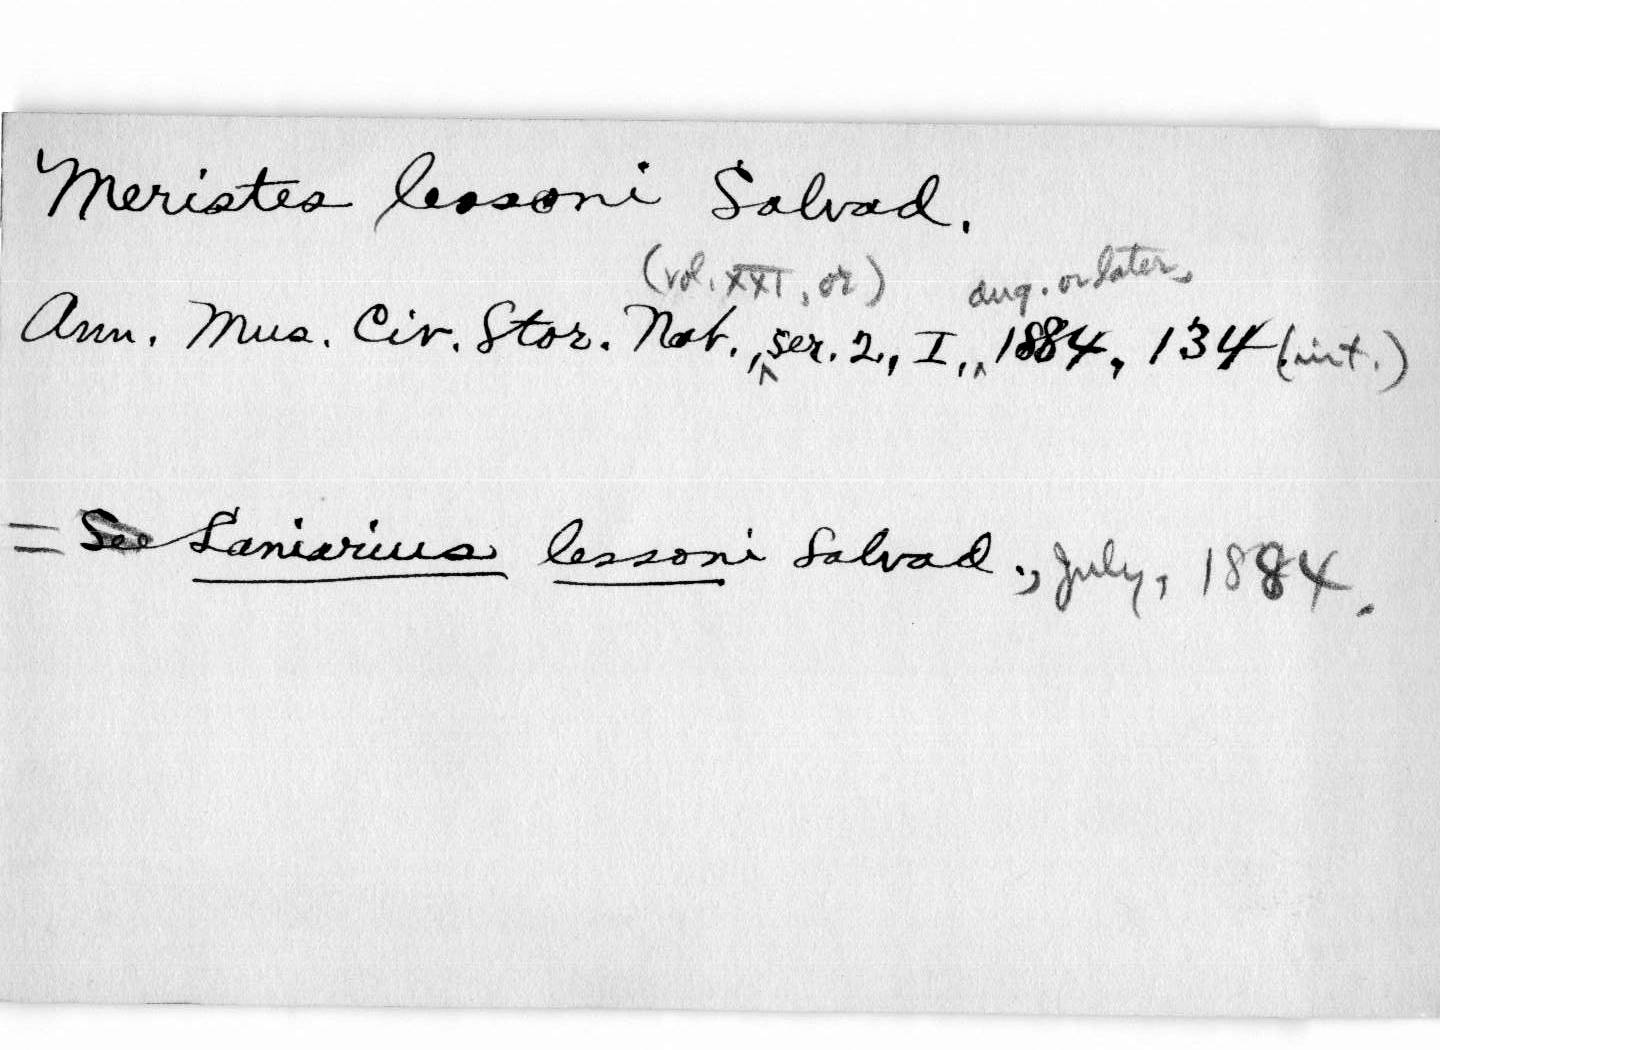 Meristes lessoni Salvad.
(vol. XXI, or) aug. or later,
Ann. Mus. Civ. Stor. Nat., ser. 2, I, 1884, 134 (int.)
= See Laniarius lessoni Salvad., July, 1884.